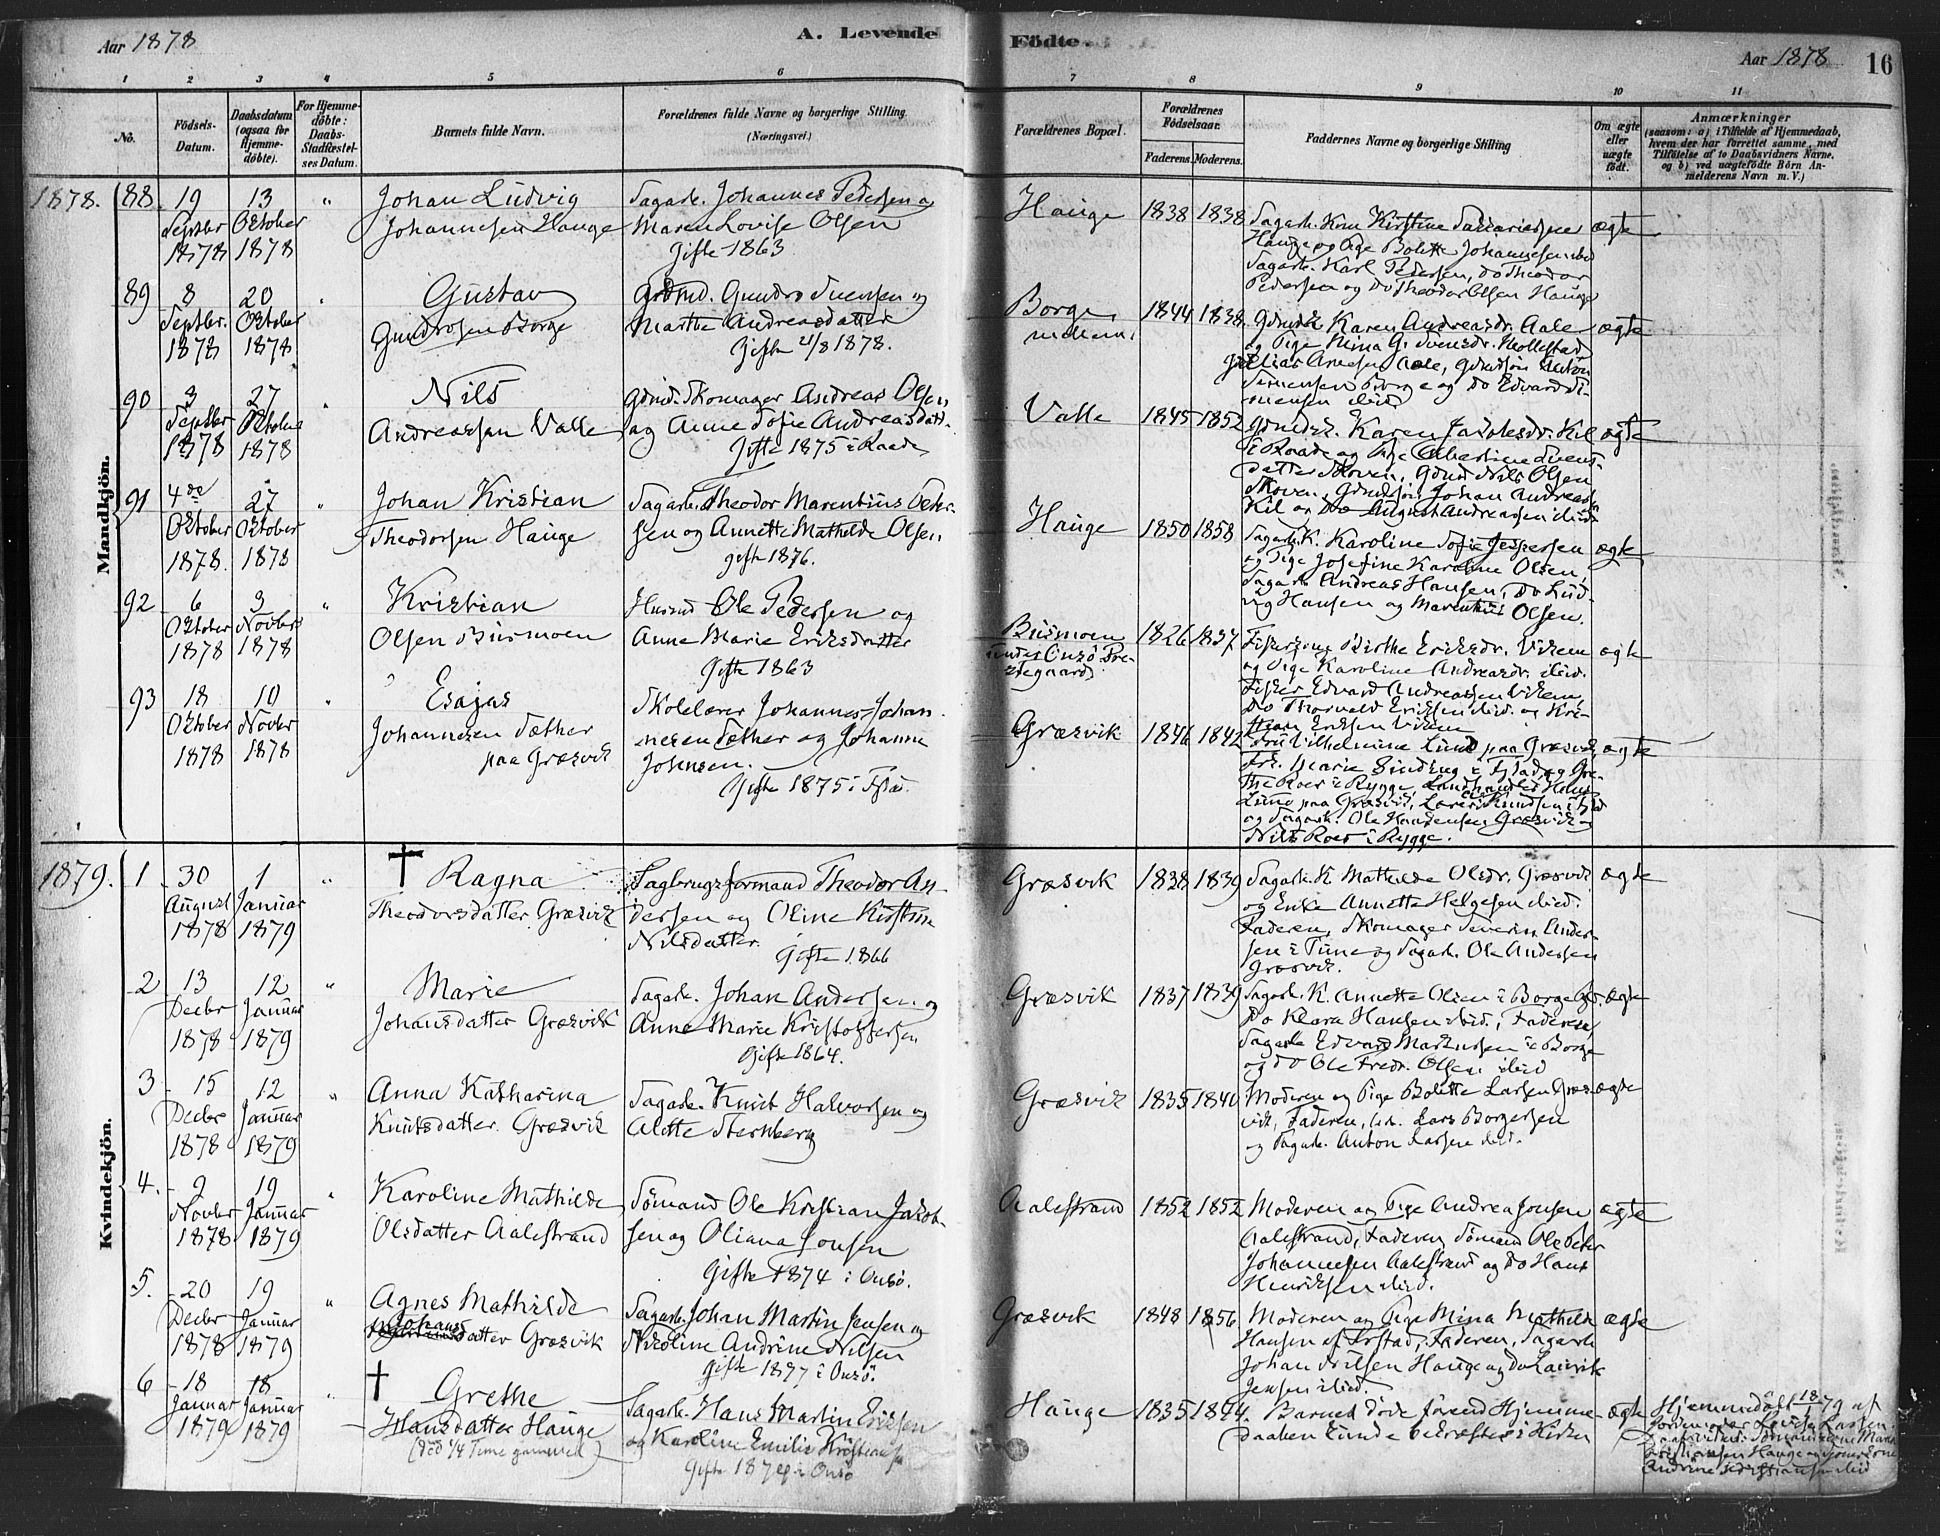 Aar 1878
A. Levende
Födte.
Aar 1878
16
1 2 3 4 5 6 7 8 9 10 11
No.
Födsels-
Datum.
Daabsdatum
(ogsaa for
Hjemme-
döbte).
For Hjemme-
döbte:
Daabs-
Stadfæstel-
ses Datum.
Barnets fulde Navn.
Forældrenes fulde Navne og borgerlige Stilling
(Næringsvei.)
Forældrenes Bopæl.
Forældrenes
Födselsaar.
Faderens. Moderens.
Faddernes Navne og borgerlige Stilling
Om ægte
eller
uægte
födt.
Anmærkninger
(saasom: a) i Tilfælde af Hjemmedaab,
hvem der har forrettet samme, med
Tilföielse af to Daabsvidners Navne,
og b) ved uægtefödte Börn An-
melderens Navn m. V.)
Mandkjön.
1878. 88. 19 Septbr 1878
13 Oktober 1878
Johan Ludvig
Johannesen Hauge
Sagarb. Johannes Pedersen og
Maren Lovise Olsen
Gifte 1863
Hauge 1838 1838
Hauge og Pige Bolette Johannesen ibid
Sagarb. Karl Pedersen, Do Theodor
Pedersen og Do Theodor Olsen Hauge
ægte
89 8 Septbr. 1878
20 Oktober 1878
Gustav
Gundrosen Borge
Grdmd. Gundro Svensen og
Marthe Andreasdatter
Gifte 21/8 1878.
Borge
1844 1838
Karen Andreasdr. Aale
og Pige Mina G. Svensdr.
Arnesen Aale, Gdmdsön Anton
Simensen Borge og Do Edvard Si-
mensen ibid
ægte
90 3 Septbr 1878
27 Oktober 1878
Nils
Andreassen Valle
Gdmd. Skomager Andreas Olsen
og Anne Sofie Andreasdatt.
Gifte 1875 i Raade
Valle 1845 1852
Karen Jakobsdr. Kil
i Raade og Pige Albertine Svens-
datter Skoven, Gdmd Nils Olsen
Skoven, Gdmdsön Johan Andreassen
Kil og Do August Andreassen ibid
ægte
91 4de Oktober 1878.
27 Oktober 1878
Johan Kristian
Theodorsen Hauge
Sagarb. Theodor Marentius Peder-
sen og Annette Mathilde Olsen
gift 1876.
Hauge 1850 1858
Sagarb. K. Karoline Sofie Jespersen
og Pige Josefine Karoline Olsen,
Sagarb Andreas Hansen, Do Lud-
vig Hansen og Marentius Olsen.
ægte
92 6 Oktober 1878
3 Novbr 1878
Kristian
Olsen Busmoen
Husmd Ole Pedersen og
Anne Marie Eriksdatter
Gifte 1863
Busmoen
under Onsö Præ-
stegaard
1826 1837
Birthe Eriksdr. Viken
og Pige Karoline Andreasdr. ibid.
Fisker Edvard Andreassen Viken,
Do Thorvald Eriksen ibid. og Kri-
stian Eriksen Viken
ægte
93 18 Oktober 1878
10 Novbr 1878
Esajas
Johannesen Sæther
paa Græsvik
Skolelærer Johannes Johan-
nesen Sæther og Johanne
Josensen.
Gifte 1875 i
Græsvik 1846 1842
Fru Vilhelmine Lund paa Græsvik,
Frk. Marie Sinding i
the Roer i Rygge, Landhandler Hans
Lund paa Græsvik,
og Sagarb. Ole Græsvik og
Nils Roer i Rygge.
ægte
Kvindekjön.
1879. 1 30 August 1878
1 Januar 1879
† Ragna
Theodorsdatter Græsvik
Sagbrugsformand Theodor An-
dersen og Oline Kirstine
Nilsdatter
Gifte 1866
Græsvik 1838 1839
Sagarb. K Mathilde Olsdr. Græsvik
og Enke Annette Helgesen ibid.
Faderen, Skomager Severin Ander-
sen i Tune og Sagarb. Ole Andersen
Græsvik.
ægte
2 13 Decbr 1878
12 Januar 1879
Marie
Johansdatter Græsvik
Sagarb. Johan Andersen og
Anne Marie Kristoffersen
Gifte 1864.
Græsvik 1837 1839
Sagarb. K. Annette Olsen i Borge
Do Klara Hansen ibid., Faderen,
Sagarb Edvard Martinsen i Borge
og Do Ole Fredr. Olsen ibid
ægte
3 15 Decbr 1878
12 Januar 1879
Anna Katharina
Knutsdatter Græsvik
Sagarb. Knut Halvorsen og
Alette Sternberg
Græsvik 1835 1840
Moderen og Pige Bolette Larsen Græs-
vik, Faderen, Lars Borgersen
og Sagarb. Anton Larsen ibid.
ægte
4. 9 Novbr 1878
19 Januar 1879
Karoline Mathilde
Olsdatter Aalestrand
Sömand Ole Kristian Jakob-
sen og Oliana Jonsen
Gifte 1874 i Onsö.
Aalestrand 1852 1852
Moderen og Pige Andrea Jonsen
Aalestrand, Faderen, Sömand Ole Peter
Johannesen Aalestrand og Do Hans
Henriksen ibid.
ægte
5. 20 Decbr 1878
19 Januar 1879
Agnes Mathilde
Johans
datter Græsvik
Sagarb. Johan Martin Jensen og
Nikoline Andrine Nilsen
Gifte 1877 i Onsö.
Græsvik 1848 1856
Moderen og Pige Mina Mathilde
Hansen af Faderen, Sagarb
Johan Nilsen Hauge og Do Laurits
Jensen ibid.
ægte
6 18 Januar 1879
18 Januar 1879
† Grethe
Hansdatter Hauge
(död 1/4 Time gammel)
Sagarb. Hans Martin Eriksen
og Karoline Emilie Kristiansen
Gifte i Onsö
Hauge 1835 1844.
Barnet döde förend Hjemme-
daaben kunde bekræftes i Kirken
ægte
Hjemmedöbt 18/1 79 af
Jordemoder
Hauge og
Andrine Kristiansen ibid